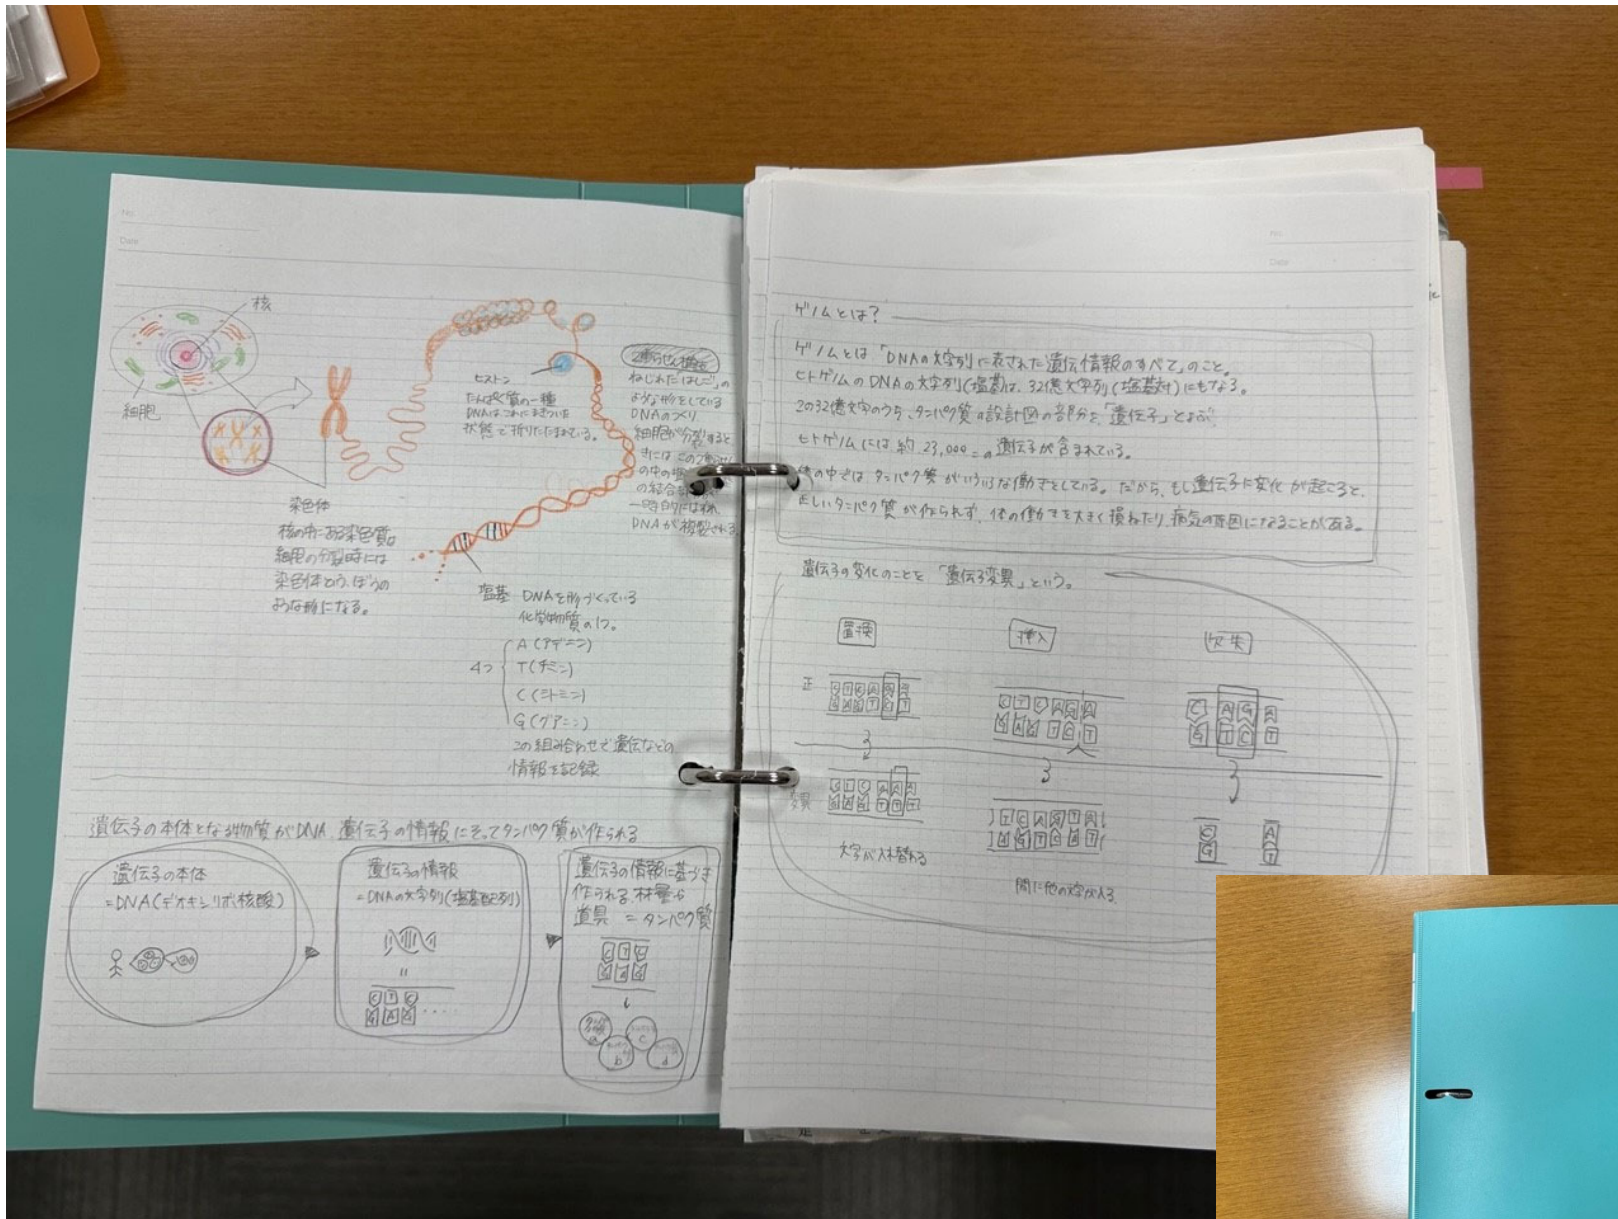 No.
Date
核
細胞
染色体
核の中にある染色質は
細胞の分裂時には
染色体という、ぼうの
ような形になる。
ヒストン
たんぱく質の一種
DNAはこれにまきついた
状態で折りたたまれている。
2重らせん構造
ねじれた「はしご」の
ような形をしている
DNAのつくり
細胞が分裂すると
きにはこの2重らせ
の中の塩
の結合
一時的には
DNAが複製される
塩基 DNAを形づくっている
化学物質の1つ。
4つ
A(アデニン)
T(チミン)
C(シトミン)
G(グアニン)
この組み合わせで遺伝などの
情報を記録
遺伝子の本体となる物質がDNA、遺伝子の情報にそってタンパク質が作られる
遺伝子の本体
=DNA(デオキシリボ核酸)
遺伝子の情報
=DNAの文字列(塩基配列)
=
C T C
G A G ....
遺伝子の情報に基づき
作られる、材量や
道具 = タンパク質
C T C
G A G
a b c d
No.
Date
ゲノムとは?
ゲノムとは「DNAの文字列に表された遺伝情報のすべて」のこと。
ヒトゲノムのDNAの文字列(塩基)は、32億文字列(塩基対)にもなる。
この32億文字のうち、タンパク質の設計図の部分を「遺伝子」とよぶ
ヒトゲノムには約23,000この遺伝子が含まれている。
体の中では、タンパク質がいろいろな働きをしている。だから、もし遺伝子に変化が起こると、
正しいタンパク質が作られず、体の働きを大きく損ねたり、病気の原因になることがある。
遺伝子の変化のことを「遺伝子変異」という。
置換
挿入
欠失
正
C T C A G A
G A G T C T
C T C A G A
G A G T C T
C A G A
G T C T
変異
C T C A A A
G A G T T T
文字が入れ替わる
T C A G T A
A G T C A T
間に他の文字が入る
C A
G T